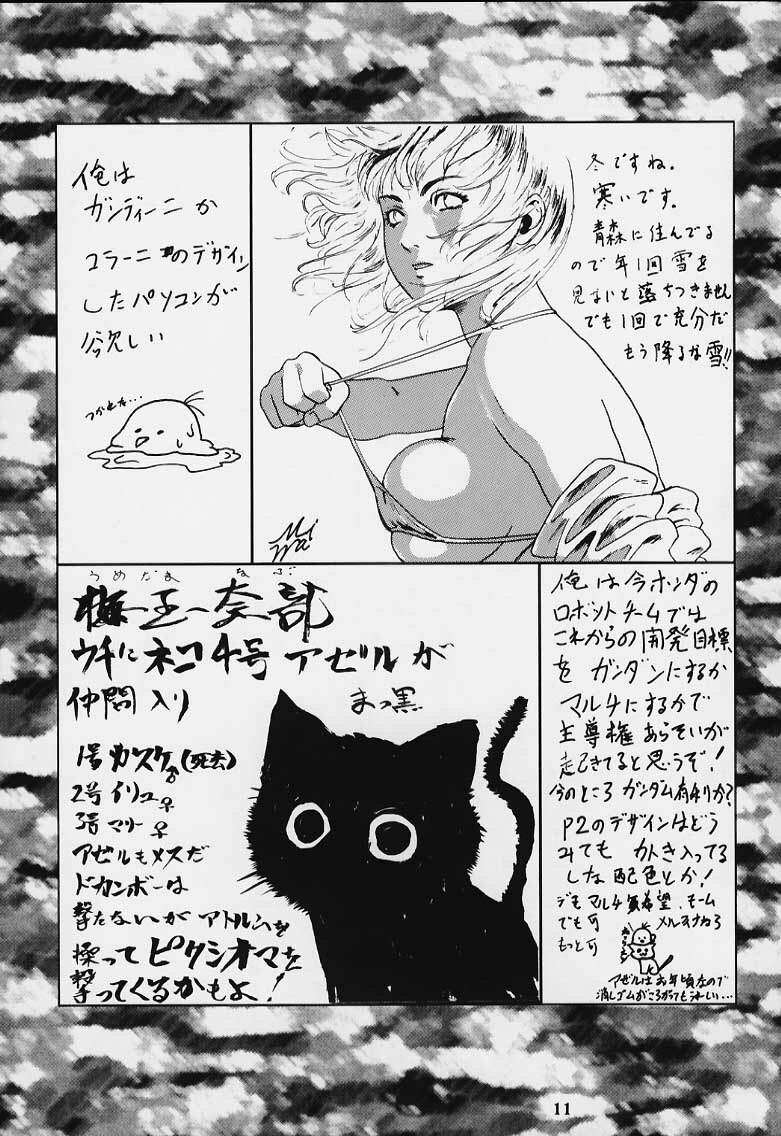 冬ですね。
寒いです。
青森に住んでる
ので年1回雪を
見ないと落ちつきません
でも1回で充分だ
もう降るな雪!!
俺は
ガンディーニか
コラーニのデザイン
したパソコンが
欲しい
つかれた…
うめだま なぶ
梅玉奈部
ウチにネコ4号 アゼルが
仲間入り
まっ黒
1号 カスケ♂(死去)
2号 イリュ♀
3号 マリー♀
アゼルもメスだ
ドカンボーは
撃たないが アトルムを
操って ピクシオマを
撃ってくるかもよ!
俺は今ホンダの
ロボットチームでは
これからの開発目標
を ガンダンにするか
マルチにするかで
主導権あらそいが
起きてると思うぞ!
今のところ ガンダム有利か?
P2のデザインはどう
みても 入ってる
しな 配色とか!
デモ マルチ 希望、モーム
でも可
もっと可
アゼルはお年頃なので
消しゴムがころがってもうれしい…
11